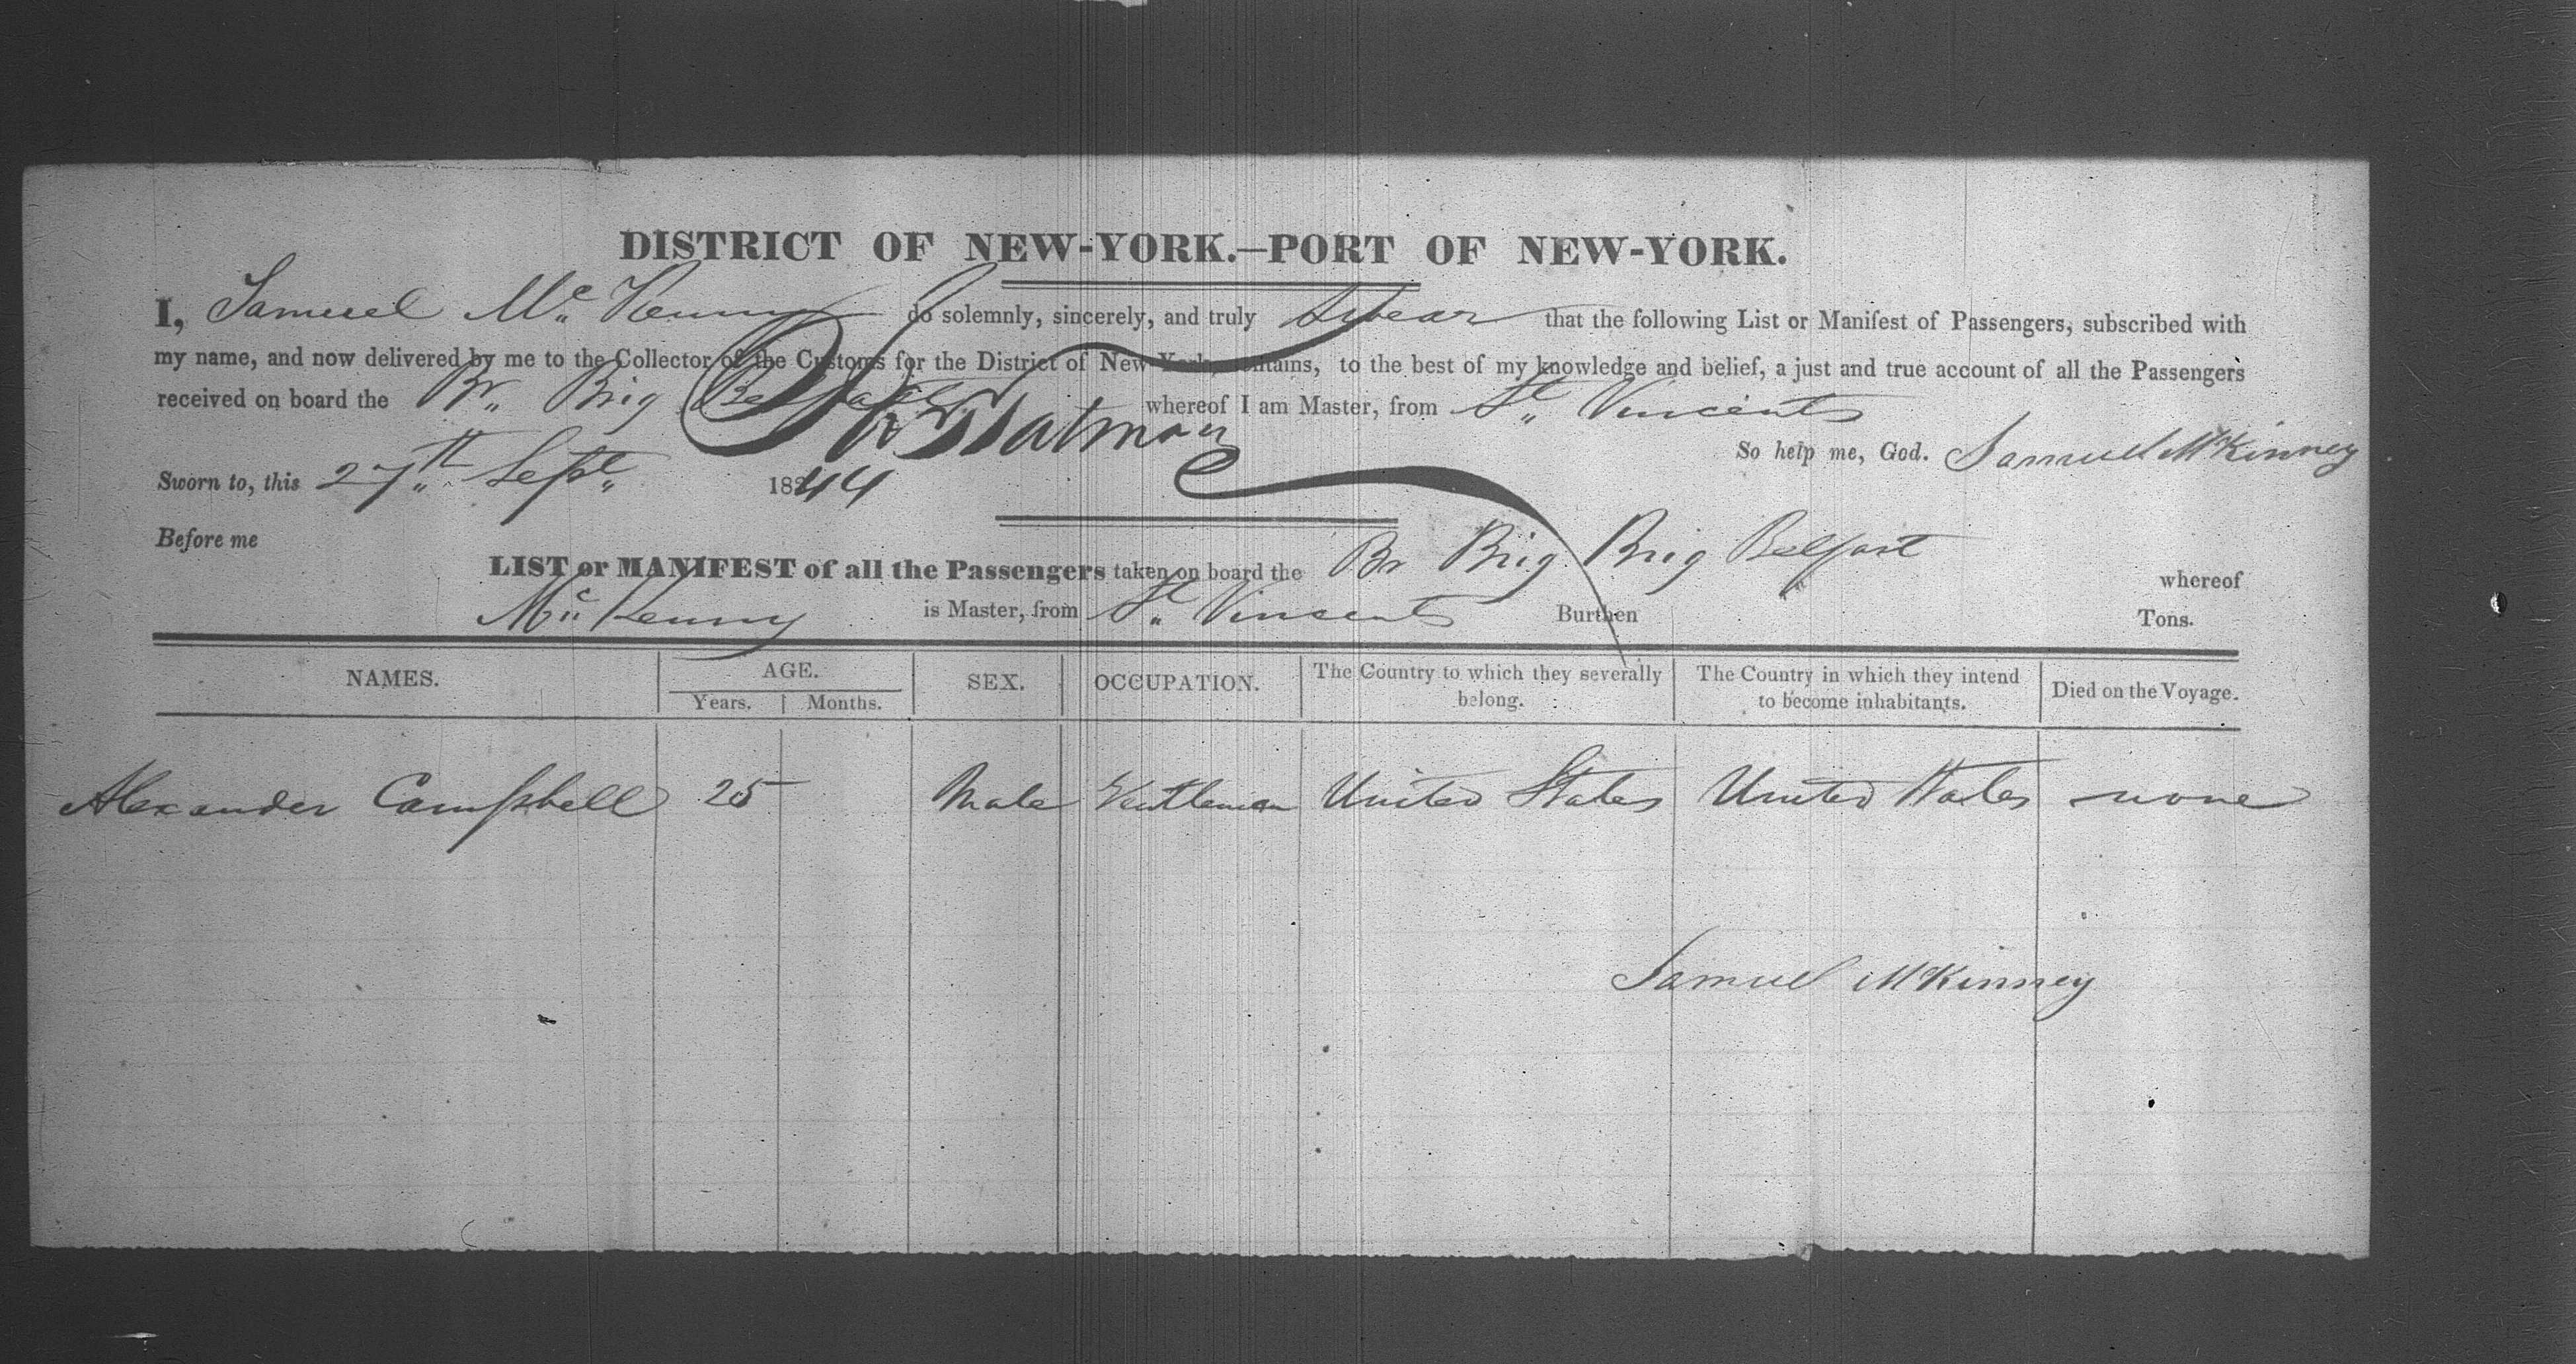 DISTRICT OF NEW-YORK.—PORT OF NEW-YORK.
I, Samuel Mc Kenny do solemnly, sincerely, and truly Swear that the following List or Manifest of Passengers, subscribed with
my name, and now delivered by me to the Collector of the Customs for the District of New-York, contains, to the best of my knowledge and belief, a just and true account of all the Passengers
received on board the Br. Brig Belfast whereof I am Master, from St. Vincents
So help me, God. Samuel McKinney
Sworn to, this 27th Sept. 1844
Before me
LIST or MANIFEST of all the Passengers taken on board the Br Brig Brig Belfast whereof
Mc Kenny is Master, from St. Vincents Burthen Tons.
NAMES. AGE. Years. Months. SEX. OCCUPATION. The Country to which they severally belong. The Country in which they intend to become inhabitants. Died on the Voyage.
Alexander Campbell 25 Male Gentleman United States United States none
Samuel McKinney